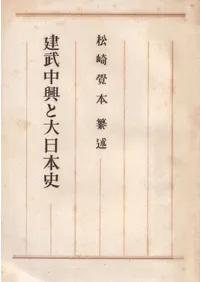 松崎覺本纂述
建武中興と大日本史